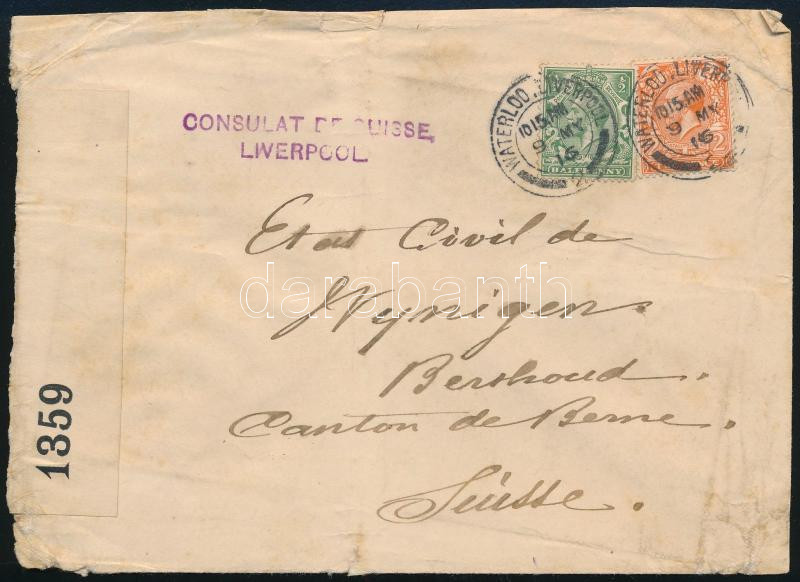 CONSULAT DE SUISSE,
LIVERPOOL.
WATERLOO. LIVERPOOL
10 15 AM
9 MY
16
HALFPENNY
WATERLOO. LIVERP
10 15 AM
9 MY
16
Etat Civil de
Wynigen.
darabanth
Berthoud.
Canton de Berne.
Suisse.
1359